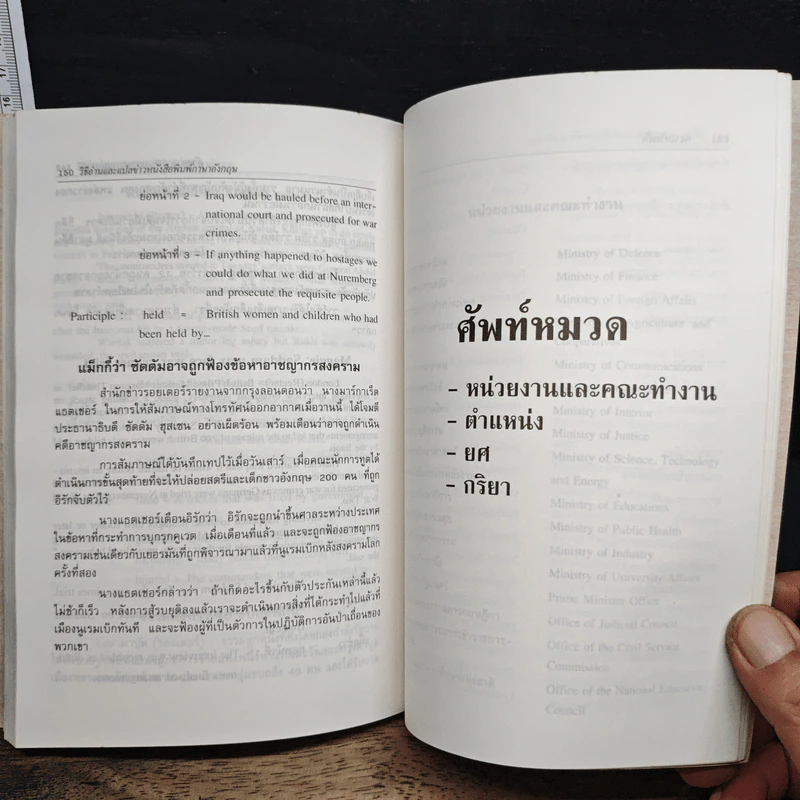 17
16
150 วิธีอ่านและแปลข่าวหนังสือพิมพ์ภาษาอังกฤษ
ย่อหน้าที่ 2 - Iraq would be hauled before an inter-
national court and prosecuted for war
crimes.
ย่อหน้าที่ 3 - If anything happened to hostages we
could do what we did at Nuremberg
and prosecute the requisite people.
Participle : held = British women and children who had
been held by...
แม็กกี้ว่า ซัดดัมอาจถูกฟ้องข้อหาอาชญากรสงคราม
สำนักข่าวรอยเตอร์รายงานจากกรุงลอนดอนว่า นางมาร์กาเร็ต
แธตเชอร์ ในการให้สัมภาษณ์ทางโทรทัศน์ออกอากาศเมื่อวานนี้ ได้โจมตี
ประธานาธิบดี ซัดดัม ฮุสเซน อย่างเผ็ดร้อน พร้อมเตือนว่าอาจถูกดำเนิน
คดีอาชญากรสงคราม
การสัมภาษณ์ได้บันทึกเทปไว้เมื่อวันเสาร์ เมื่อคณะนักการทูตได้
ดำเนินการขั้นสุดท้ายที่จะให้ปล่อยสตรีและเด็กชาวอังกฤษ 200 คน ที่ถูก
อิรักจับตัวไว้
นางแธตเชอร์เตือนอิรักว่า อิรักจะถูกนำขึ้นศาลระหว่างประเทศ
ในข้อหาที่กระทำการบุกรุกคูเวต เมื่อเดือนที่แล้ว และจะถูกฟ้องอาชญากร
สงครามเช่นเดียวกับเยอรมันที่ถูกพิจารณามาแล้วที่นูเรมเบิกหลังสงครามโลก
ครั้งที่สอง
นางแธตเชอร์กล่าวว่า ถ้าเกิดอะไรขึ้นกับตัวประกันเหล่านี้แล้ว
ไม่ช้าก็เร็ว หลังการสู้รบยุติลงแล้วเราจะดำเนินการสิ่งที่ได้กระทำไปแล้วที่
เมืองนูเรมเบิกทันที และจะฟ้องผู้ที่เป็นตัวการในปฏิบัติการอันป่าเถื่อนของ
พวกเขา
ศัพท์หมวด
- หน่วยงานและคณะทำงาน
- ตำแหน่ง
- ยศ
- กริยา
Ministry of Defence
Ministry of Finance
Ministry of Foreign Affairs
Ministry of Communications
Ministry of Interior
Ministry of Justice
Ministry of Science, Technology
and Energy
Ministry of Educations
Ministry of Public Health
Ministry of Industry
Ministry of University Affairs
Prime Minister Office
Office of Judicial Council
Office of the Civil Service
Commission
Office of the National Education
Council